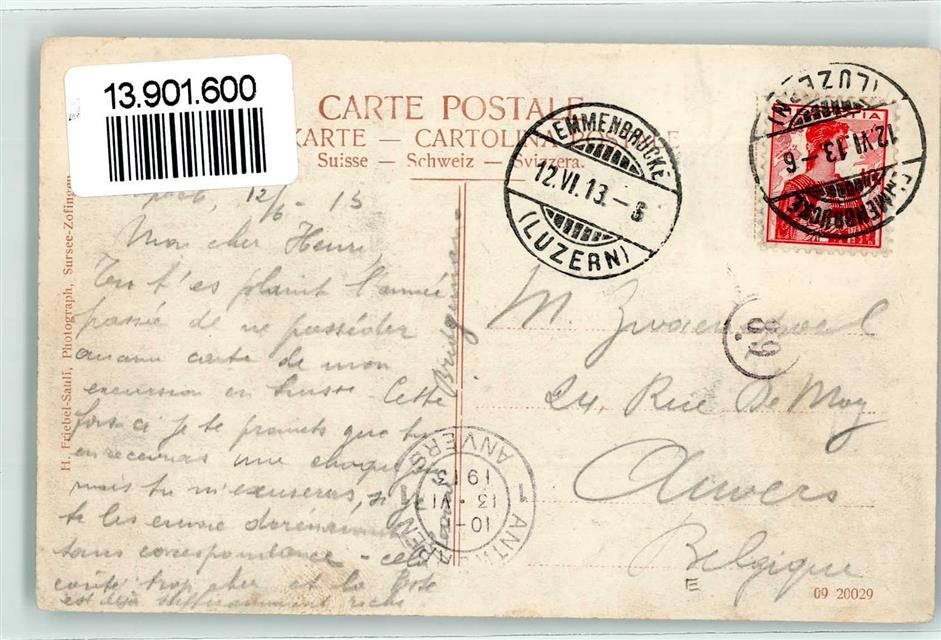 13.901.600
CARTE POSTALE
KARTE — CARTOLINA
Suisse — Schweiz — Svizzera.
EMMENBRÜCKE
12.VI.13.-
(LUZERN)
EMMENBRÜCKE
12.VI.13.-6
(LUZE
H. Friebel-Sauli, Photograph, Sursee-Zofingen
12/6 - 13
Mon cher Henri,
t'es plaint l'année
passée de ne posséder
aucune carte de mon
excursion en Suisse. Cette
fois ci je te promets que tu
en recevras une chaque
mais tu m'excuseras, si je
te les envoie dorénavant
sans correspondance - cela
coûte trop cher et la Poste
est déjà suffisamment riche
M.
24, Rue De Moy
Anvers
Belgique
68
1 ANTWERPEN 1
10-
13-VI
1913
ANVERS
E
09 20029